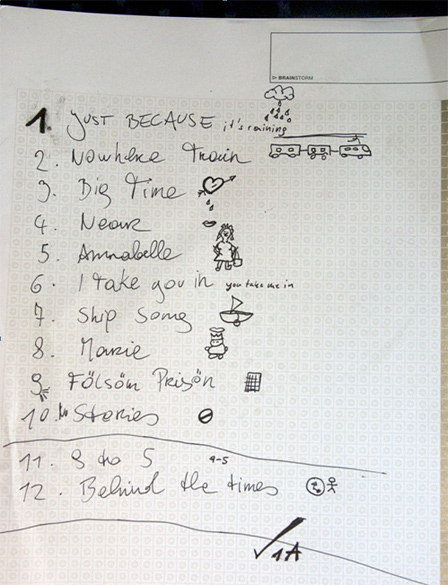 BRAINSTORM
1. JUST BECAUSE it's raining
2. Nowhere Train
3. Big Time
4. Near
5. Annabelle
6. I take you in you take me in
7. Ship Song
8. Marie
9. Fölsöm Prisön
10. Stories
11. 9 to 5 9-5
12. Behind the times
1A